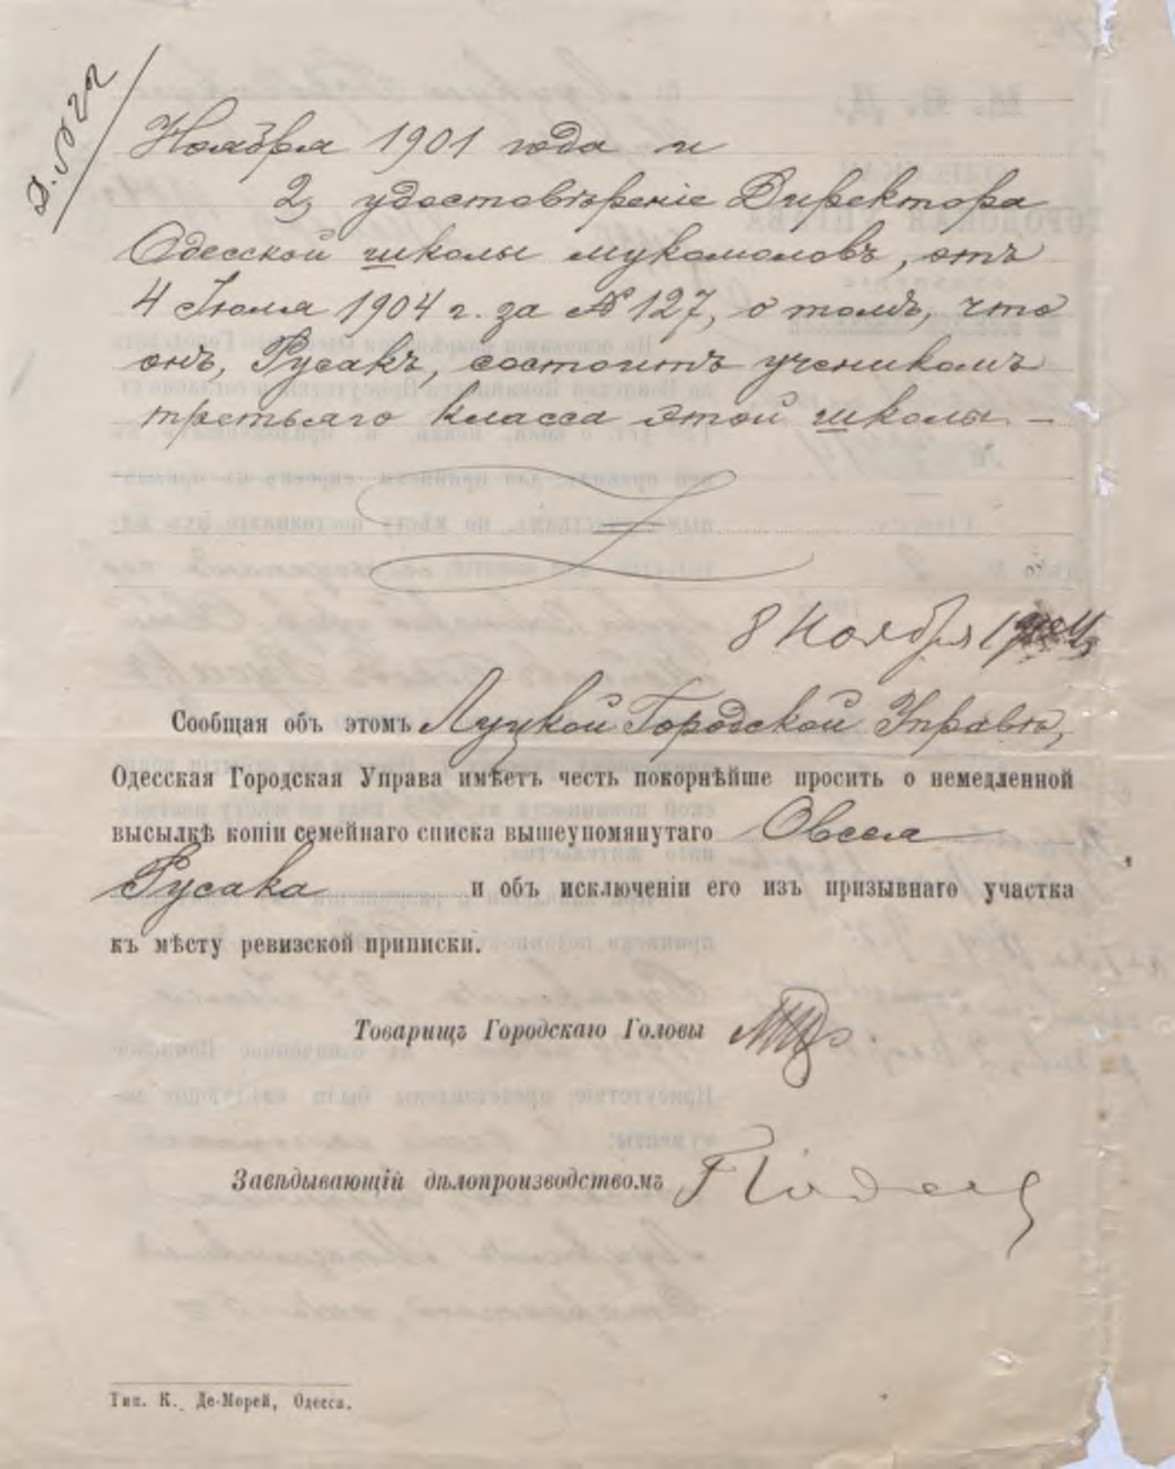 Д. № 22
Ноября 1901 года и
2, удостовѣреніе Директора
Одесской школы мукомоловъ, отъ
4 Іюля 1904 г. за № 127, о томъ, что
онъ, Русакъ, состоитъ ученикомъ
третьяго класса этой школы. —
8 Ноября
Сообщая объ этомъ Луцкой Городской Управѣ,
Одесская Городская Управа имѣетъ честь покорнѣйше просить о немедленной
высылкѣ копіи семейнаго списка вышеупомянутаго Овсея
Русака и объ исключеніи его изъ призывнаго участка
къ мѣсту ревизской приписки.
Товарищъ Городскаго Головы
Завѣдывающій дѣлопроизводствомъ
Тип. К. Де-Морей, Одесса.